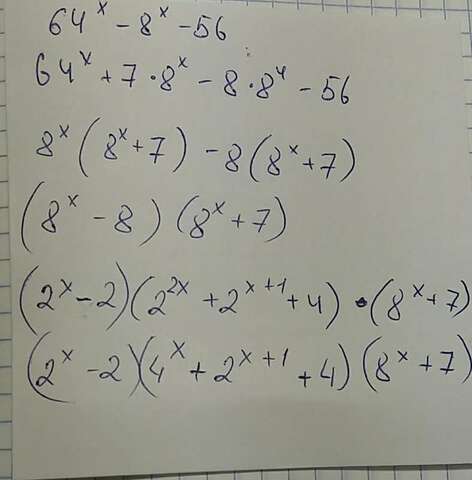 64^x - 8^x - 56
64^x + 7 · 8^x - 8 · 8^x - 56
8^x (8^x + 7) - 8 (8^x + 7)
(8^x - 8) (8^x + 7)
(2^x - 2)(2^{2x} + 2^{x+1} + 4) · (8^x + 7)
(2^x - 2)(4^x + 2^{x+1} + 4)(8^x + 7)